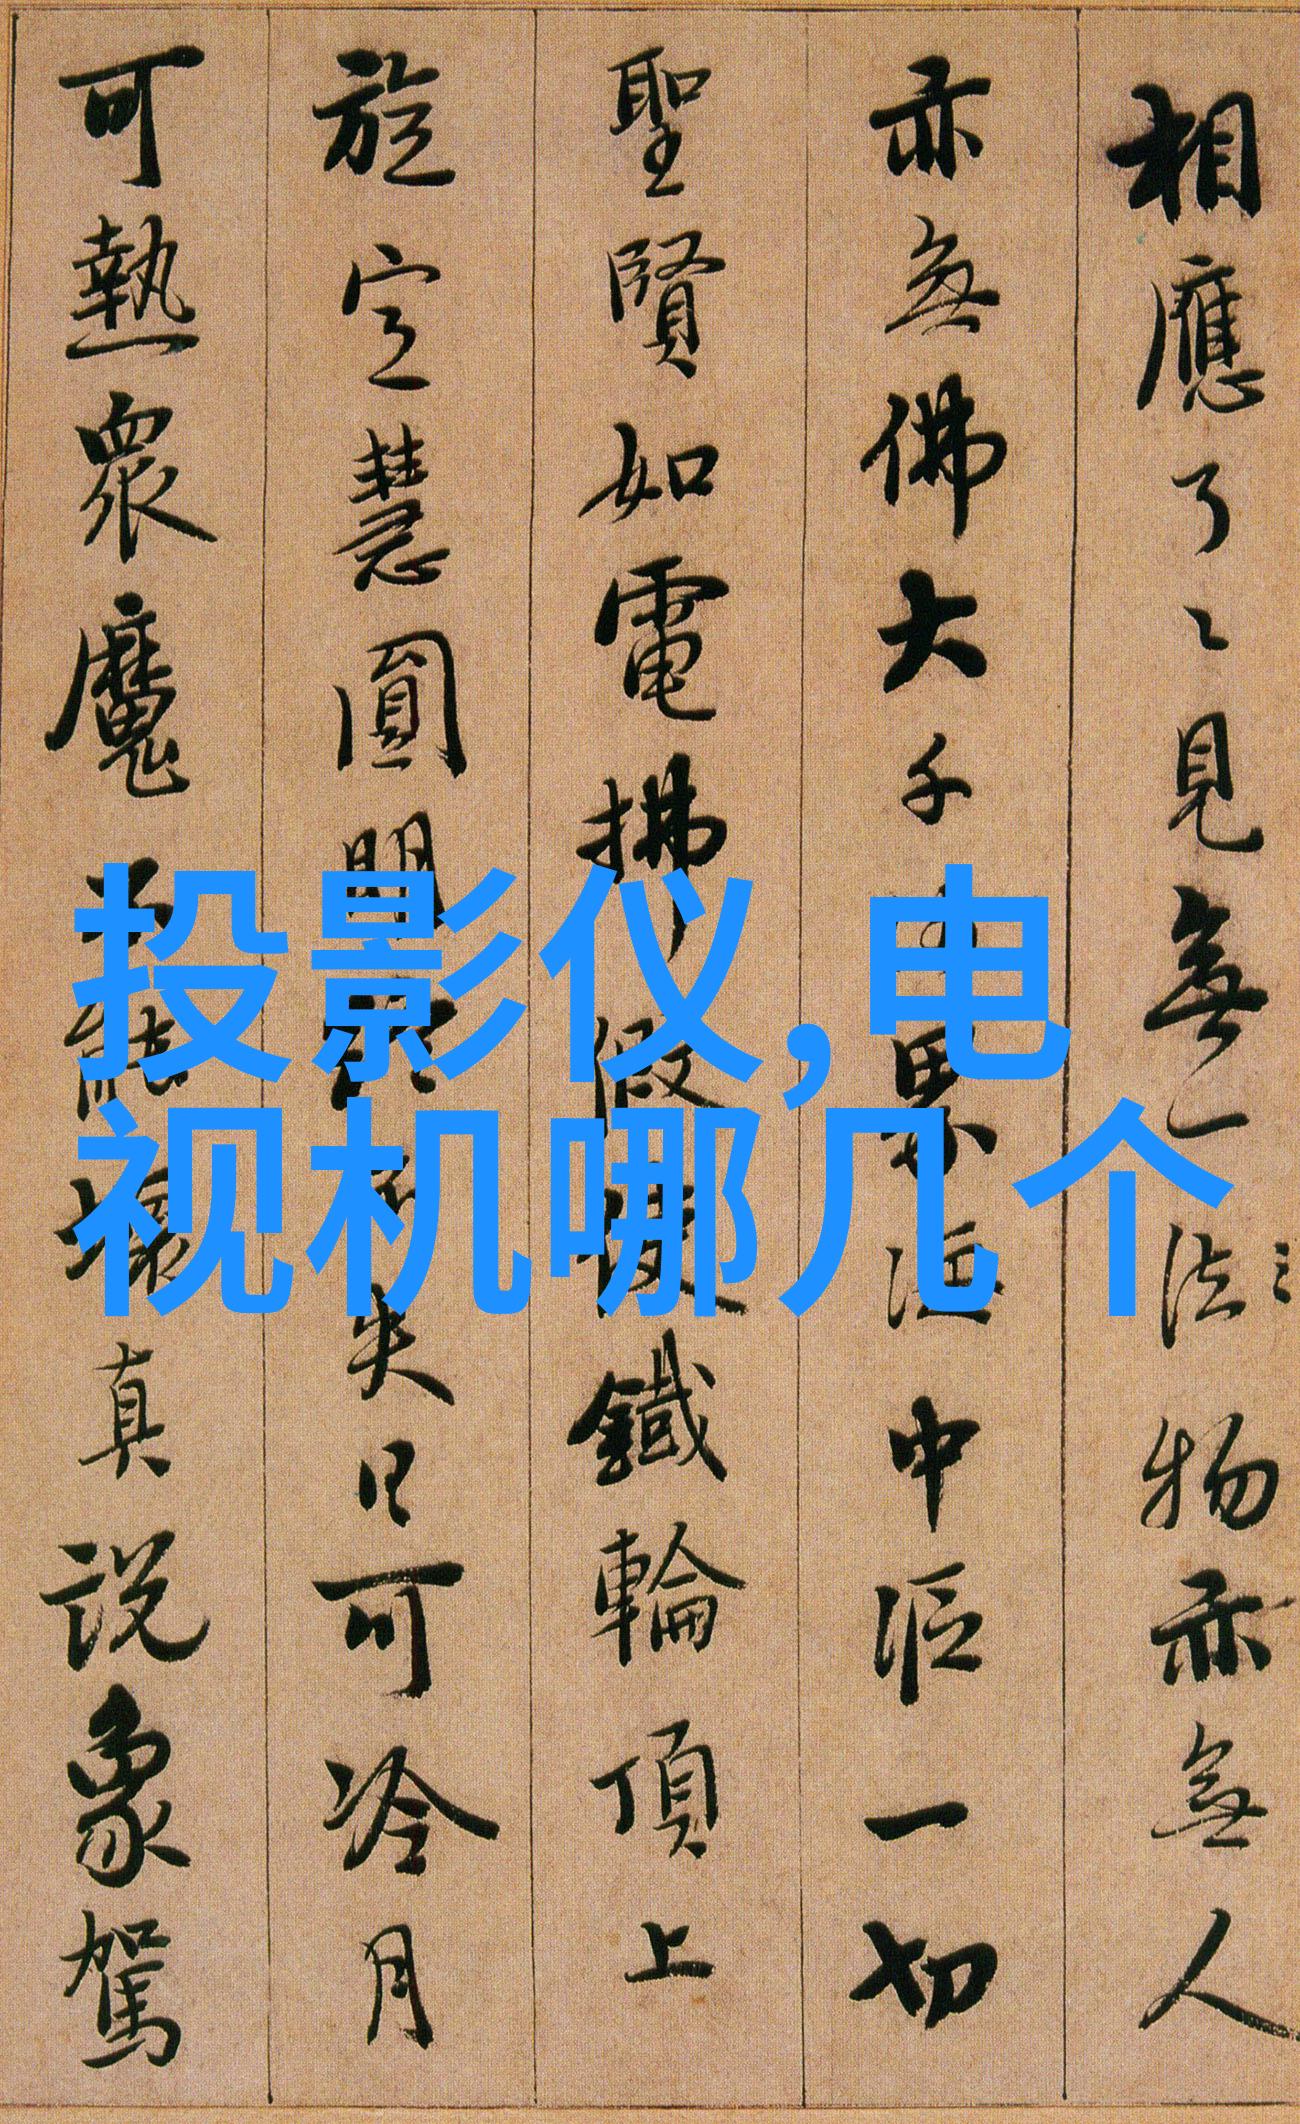 相應了〻見無一法
物亦無人
亦無佛大千
中漚一切
聖賢如電拂
鐵輪頂上
旋定慧圓明
失日可冷月
可熱衆魔
壞真説象駕
投影仪,电
视机哪几个